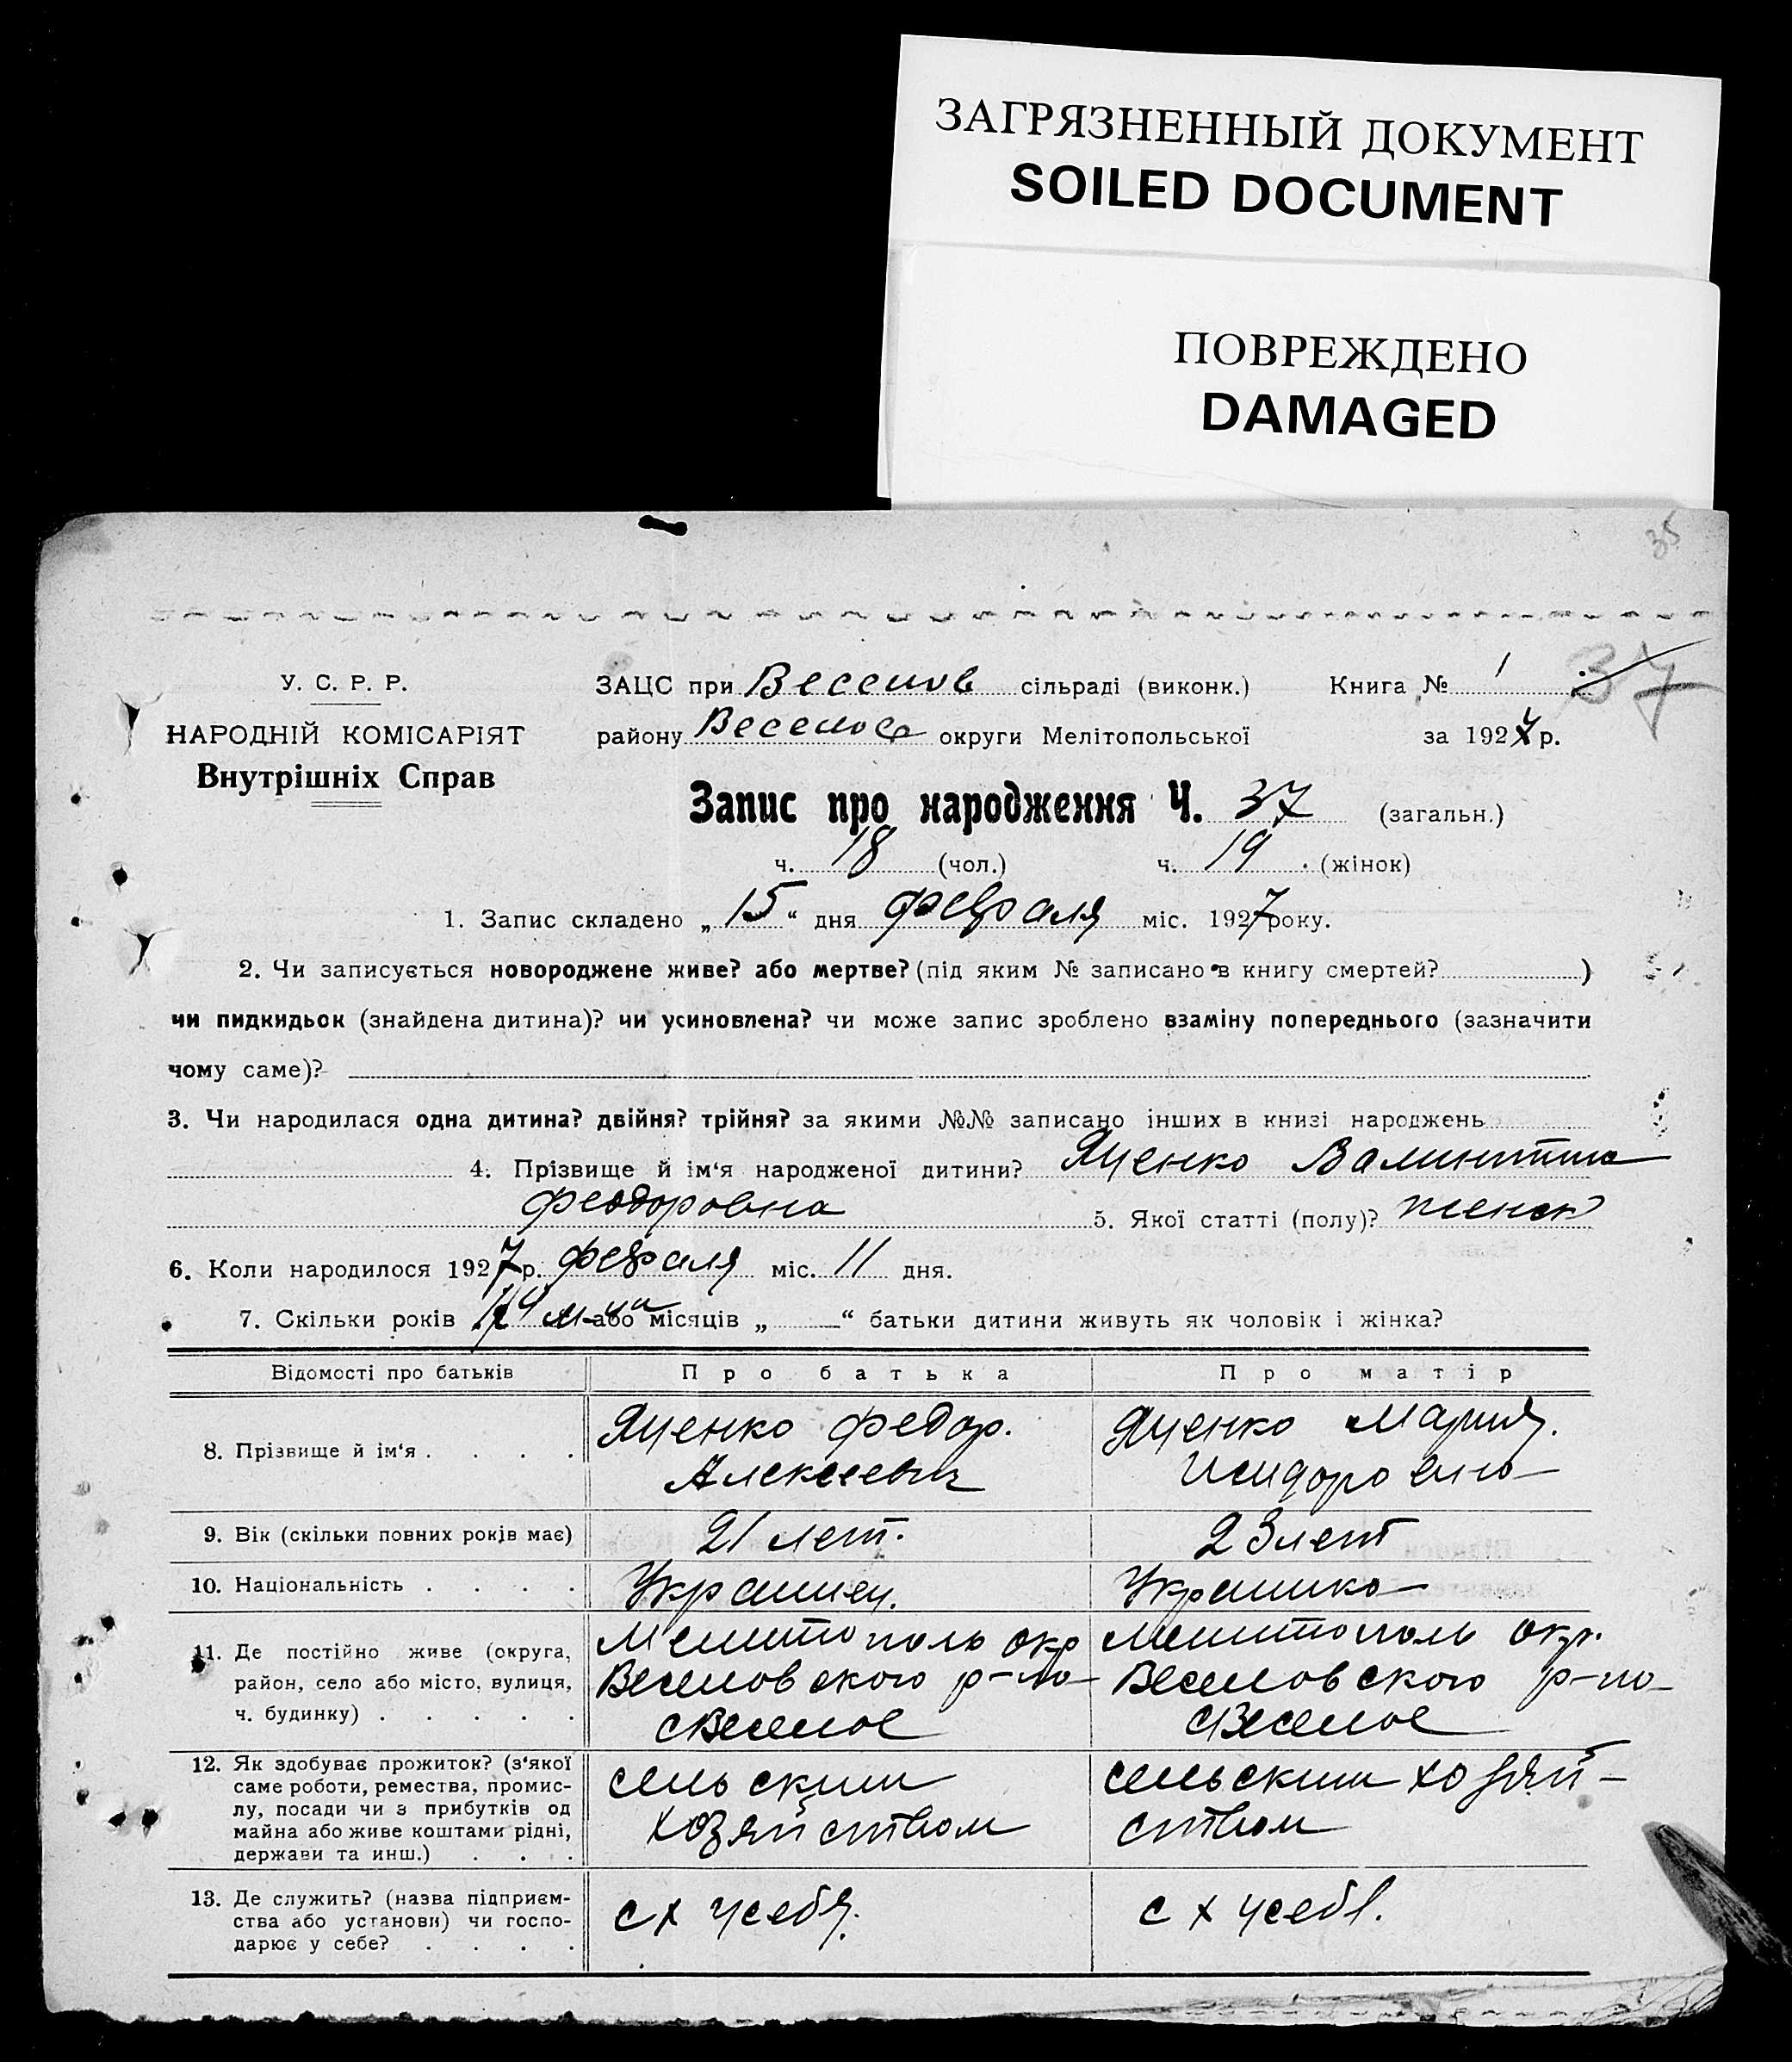 ЗАГРЯЗНЕННЫЙ ДОКУМЕНТ
SOILED DOCUMENT
ПОВРЕЖДЕНО
DAMAGED
35
37
У. С. Р. Р.
НАРОДНІЙ КОМІСАРІЯТ
Внутрішніх Справ
ЗАЦС при Веселов сільраді (виконк.) Книга № 1
району Веселовс округи Мелітопольської за 1927 р.
Запис про народження Ч. 37 (загальн.)
ч. 18 (чол.) ч. 19 (жінок)
1. Запис складено „15“ дня февраля міс. 1927 року.
2. Чи записується новороджене живе? або мертве? (під яким № записано в книгу смертей? )
чи пидкидьок (знайдена дитина)? чи усиновлена? чи може запис зроблено взаміну попереднього (зазначити
чому саме)?
3. Чи народилася одна дитина? двійня? трійня? за якими №№ записано інших в книзі народжень
4. Прізвище й ім‘я народженої дитини? Яценко Валинтина
Феодоровна 5. Якої статті (полу)? женск
6. Коли народилося 1927 р. февраля міс. 11 дня.
7. Скільки років або місяців „ — “ батьки дитини живуть як чоловік і жінка?
Відомості про батьків Про батька Про матір
8. Прізвище й ім‘я . . . . Яценко Федор. Яценко Мария.
Алексеевич Исидоровна
9. Вік (скільки повних років має) 21 лет. 23 лет
10. Національність . . . . Украинец. Украинка
11. Де постійно живе (округа, Мелитополь окр Мелитополь окр.
район, село або місто, вулиця, Веселовского р-на Веселовского р-на
ч. будинку) . . . . . с Веселое с Веселое
12. Як здобуває прожиток? (з‘якої
саме роботи, ремества, промис- сельским сельским хозяй-
лу, посади чи з прибутків од
майна або живе коштами рідні, хозяйством ством
держави та инш.) . . .
13. Де служить? (назва підприєм-
ства або установи) чи госпо- с х у себя. с х у себя.
дарює у себе? . . . .